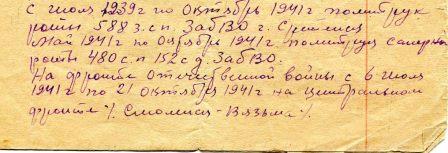 с июля 1939г по октябрь 1941г политрук
роты 588 з.сп ЗабВО г. Сретенск
Май 1941г по Октябрь 1941г политрук
роты 480 с.п 152 с д. ЗабВО.
На фронте Отечественной войны с 6 июля
1941г по 21 октября 1941г на центральном
фронте /. Смоленск - Вязьма /.